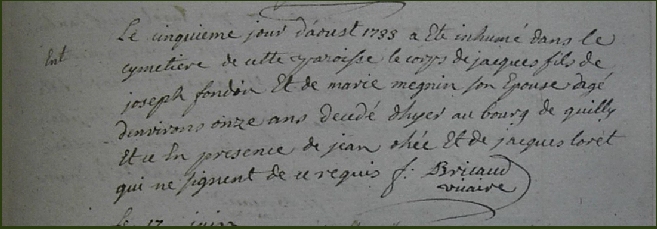 Le cinquieme jour d'aoust 1788 a été inhumé dans le
Ent cymetière de cette paroisse le corps de jacques fils de
joseph fondin Et de marie megnin son Epouse agé
d'environs onze ans decedé d'hyer au bourg de quilly
Et ce En presence de jean ohée Et de jacques lorét
qui ne signent de ce requis f: Bricaud
vicaire
Le 17 juin